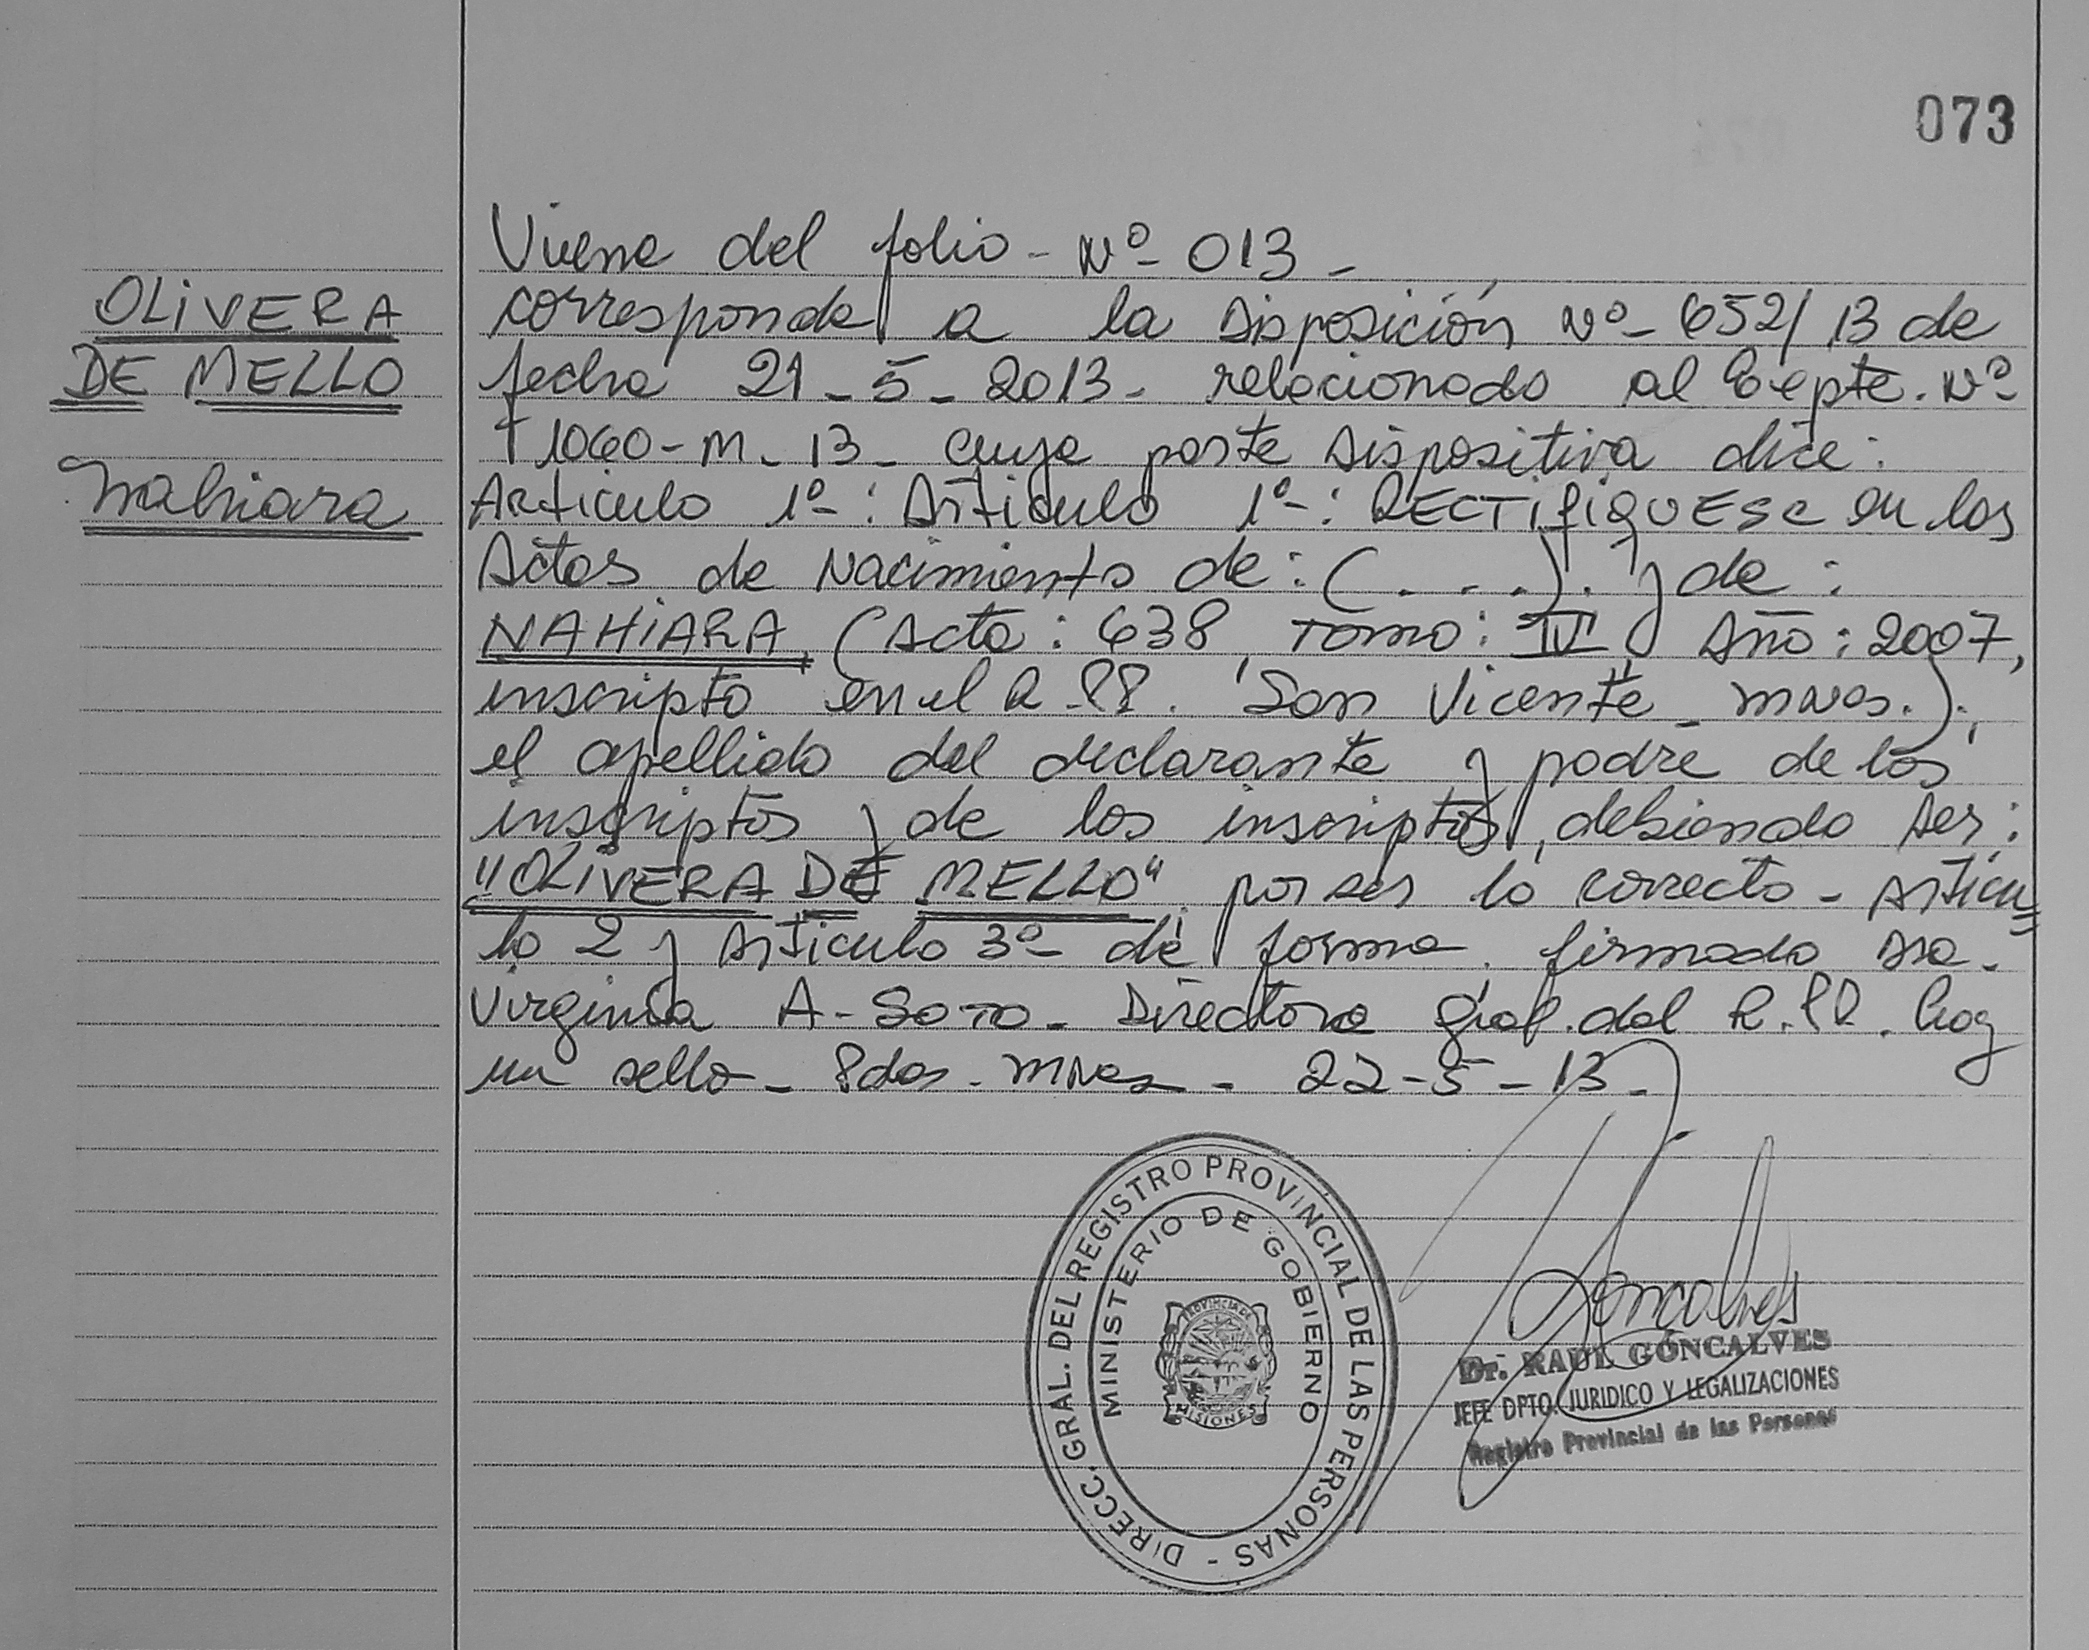 073
Viene del folio - Nº 013 -
OLIVERA
DE MELLO
Nahiara
corresponde a la Disposición Nº 652/13 de
fecha 21-5-2013- relacionado al Expte. Nº
1060-M-13- cuya parte Dispositiva dice:
Articulo 1º: Articulo 1º: RECTIFIQUESE en los
Actas de Nacimiento de: (. . .). y de:
NAHIARA, (Acta: 638, Tomo: IV, Año: 2007,
inscripto en el R.PP. "San Vicente" - Mnes.).,
el apellido del declarante y padre de los
inscriptos y de los inscriptos, debiendo ser:
"OLIVERA DE MELLO" por ser lo correcto - Articu=
lo 2 y Articulo 3º de forma. firmado Dra.
Virginia A. Soto - Directora Gral. del R.PP. hay
un sello - Pdas. Mnes - 22-5-13-
DIRECC. GRAL. DEL REGISTRO PROVINCIAL DE LAS PERSONAS -
MINISTERIO DE GOBIERNO
PROVINCIA DE
MISIONES
Goncalves
Dr. RAUL GONCALVES
JEFE DPTO. JURIDICO Y LEGALIZACIONES
Registro Provincial de las Personas